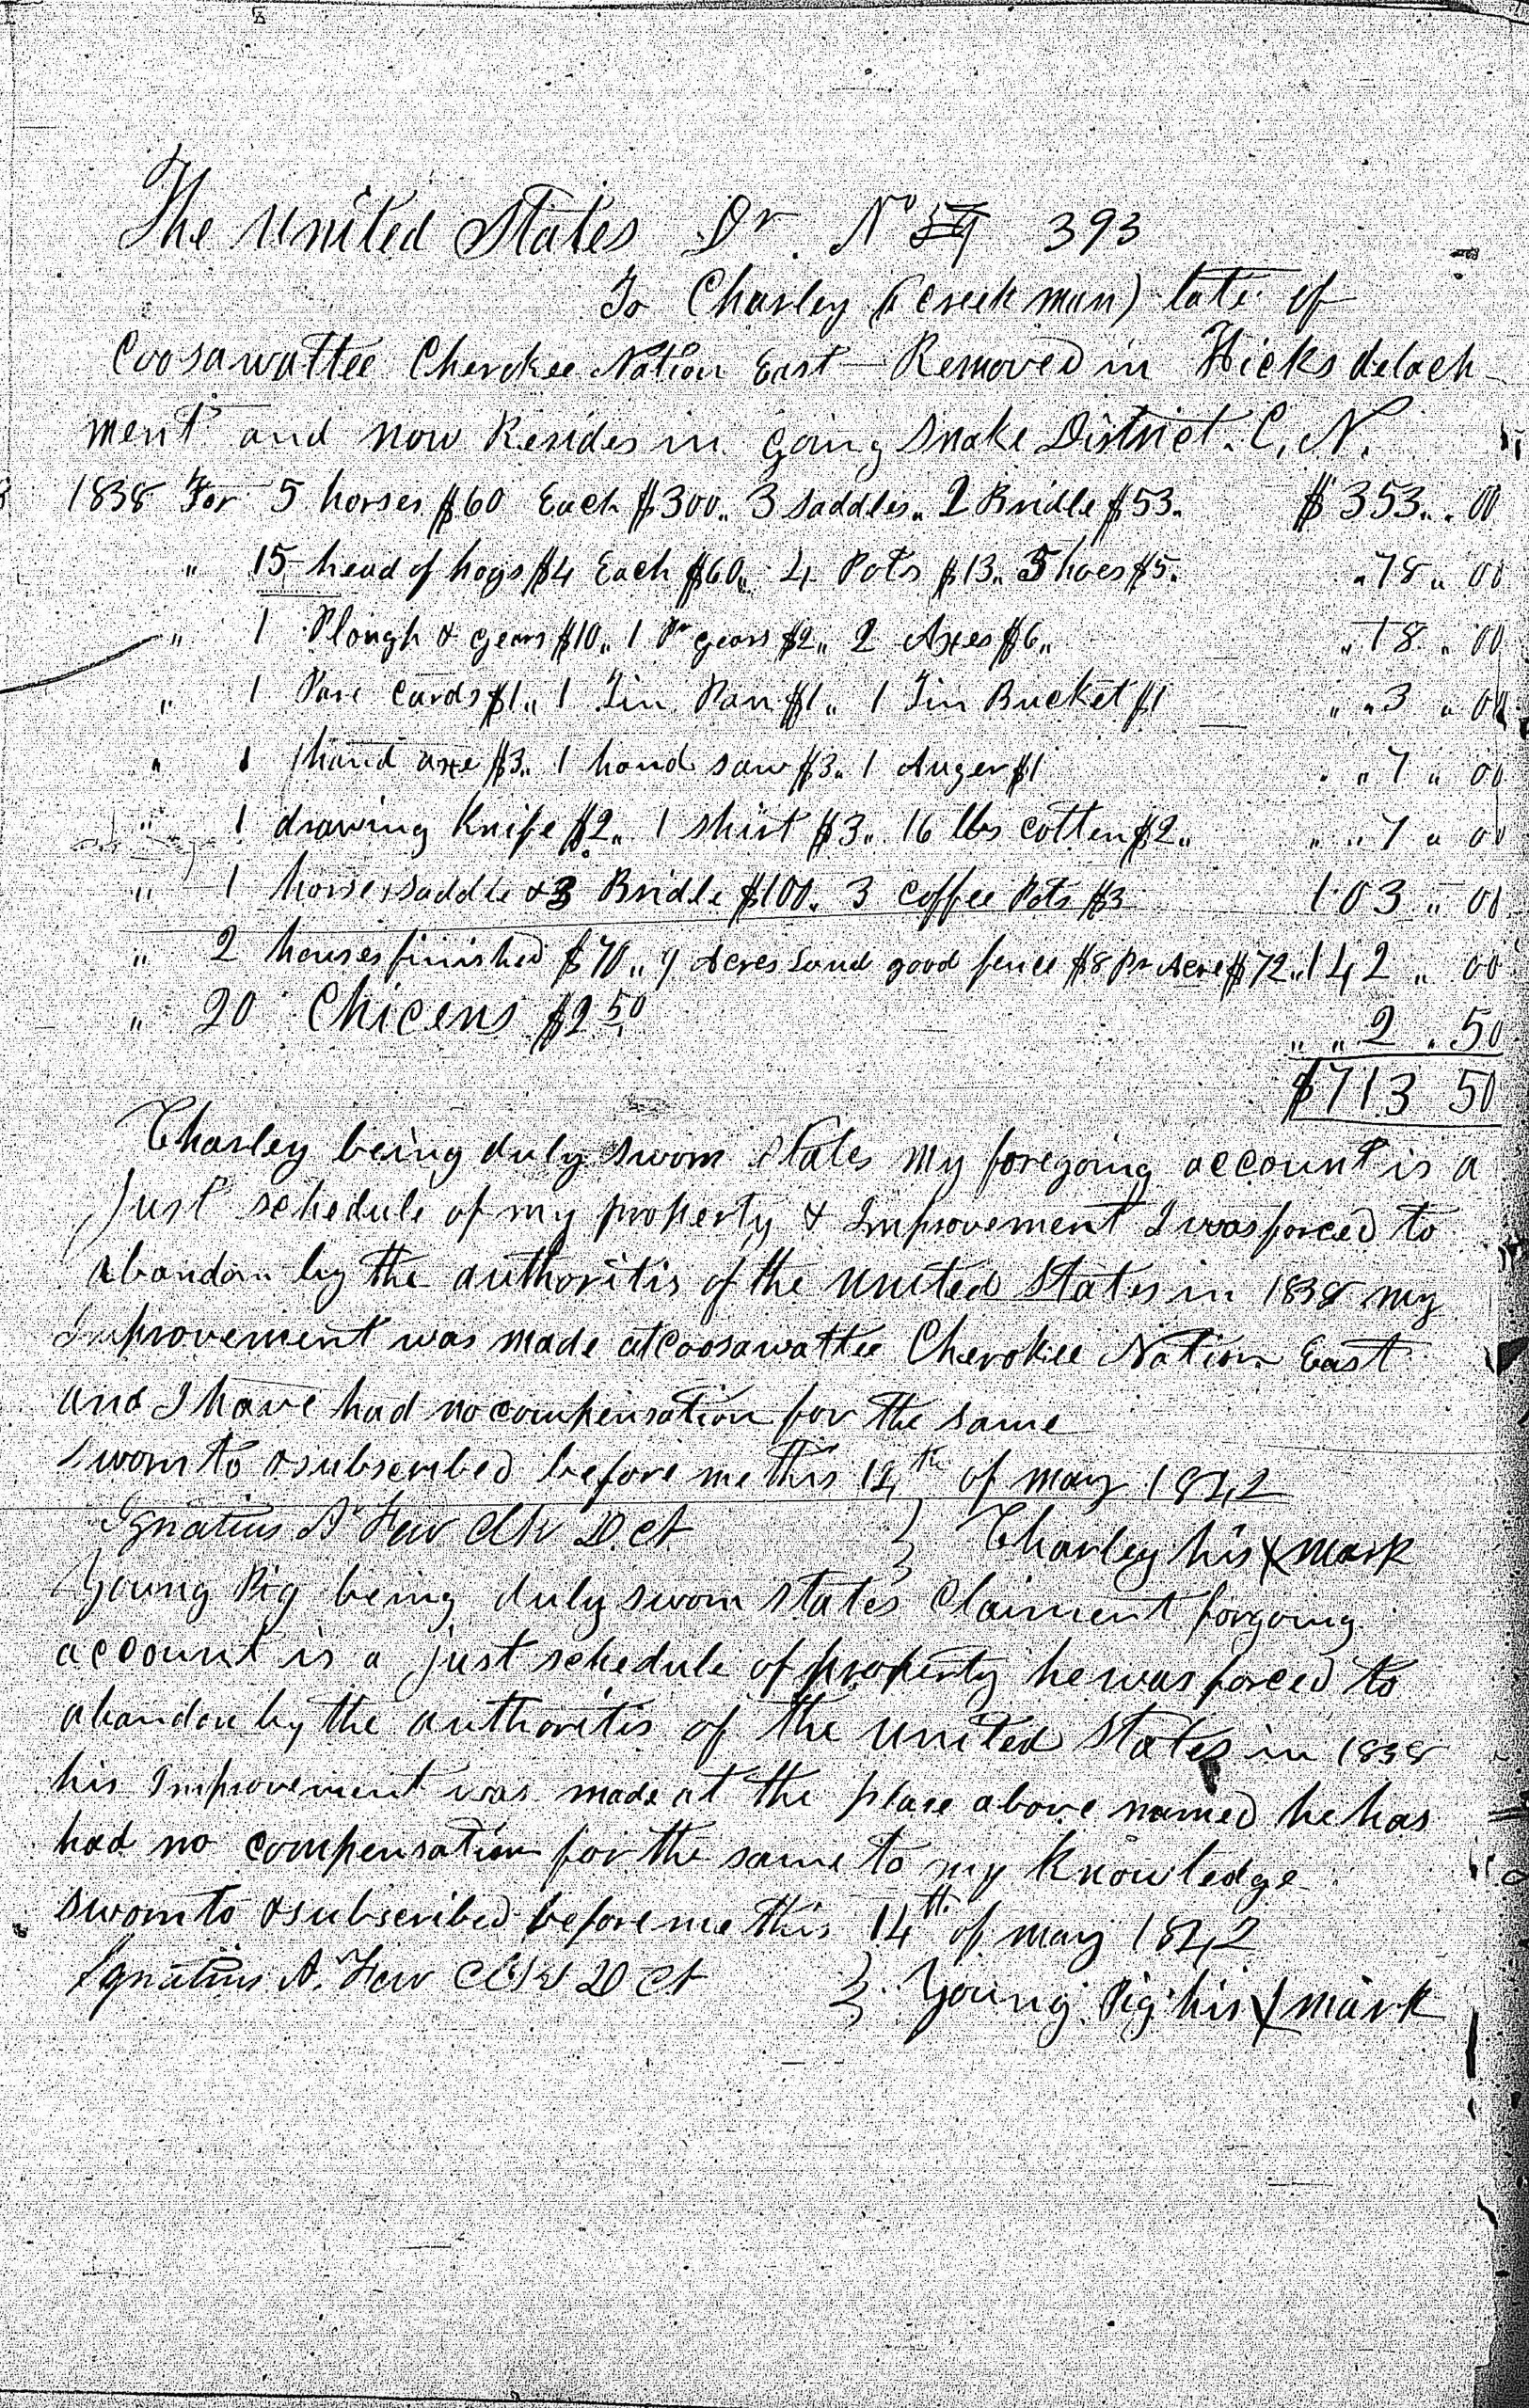 The United States Dr. No 393
To Charley (Creek man) late of
Coosawattee Cherokee Nation East Removed in Hicks detach-
ment and now Resides in going Snake District. C. N.
1838 For 5 horses $60 Each $300.. 3 Saddles.. 2 Bridle $53. $353..00
" 15 head of hogs $4 Each $60.. 4 Pots $13.. 5 hoes $5. "78"00
" 1 Plough & gears $10.. 1 Pr gears $2.. 2 Axes $6.. "18"00
" 1 Pare cards $1.. 1 Tin Pan $1.. 1 Tin Bucket $1 " "3 "00
" 1 hand axe $3.. 1 hand saw $3.. 1 Auger $1 " "7 "00
" 1 drawing Knife $2.. 1 shirt $3.. 16 lbs cotten $2.. " "7 "00
" 1 horse, saddle & 3 Bridle $100. 3 Coffee Pots $3 103 "00
" 2 houses finished $70.. 9 Acres Land good fence $8 Pr Acre $72.. 142 "00
" 20 Chicens $2.50 " "2.50
$713 50
Charley being duly sworn States my foregoing account is a
just schedule of my property & Improvement I was forced to
abandon by the authoritis of the united States in 1838 my
Improvement was made at Coosawattee Cherokee Nation East
and I have had no compensation for the same
sworn to & subscribed before me this 14th of may 1842
Ignatius A. Few Clk D. Ct } Charley his X mark
Young Pig being duly sworn states Claiment forgoing
account is a just schedule of property he was forced to
abandon by the authoritis of the united States in 1838
his Improvement was made at the place above named he has
had no compensation for the same to my Knowledge
sworn to & subscribed before me this 14th of may 1842
Ignatius A. Few Clk D Ct } Young Pig his X mark